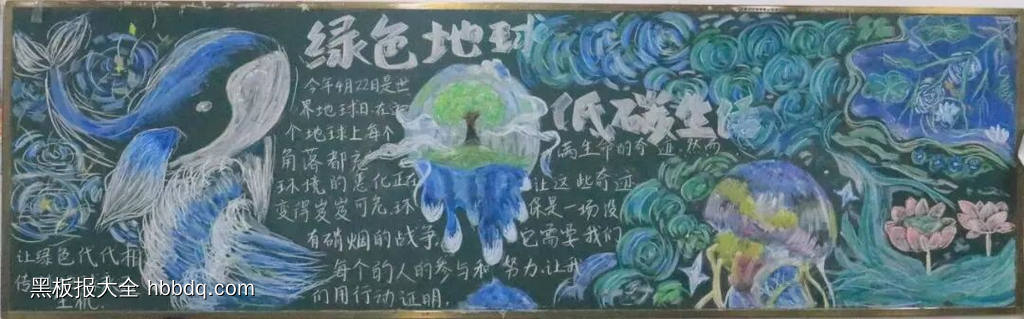 绿色地球
低碳生活
今年4月22日是世
界地球日.在
个地球上每个
角落都充
满生命的奇迹.然而
环境的恶化正
让这些奇迹
变得岌岌可危.环
保是一场没
有硝烟的战争.
它需要我们
每个的人的参与和努力.让我
们用行动证明.
让绿色代代相
传
黑板报大全 hbbdq.com